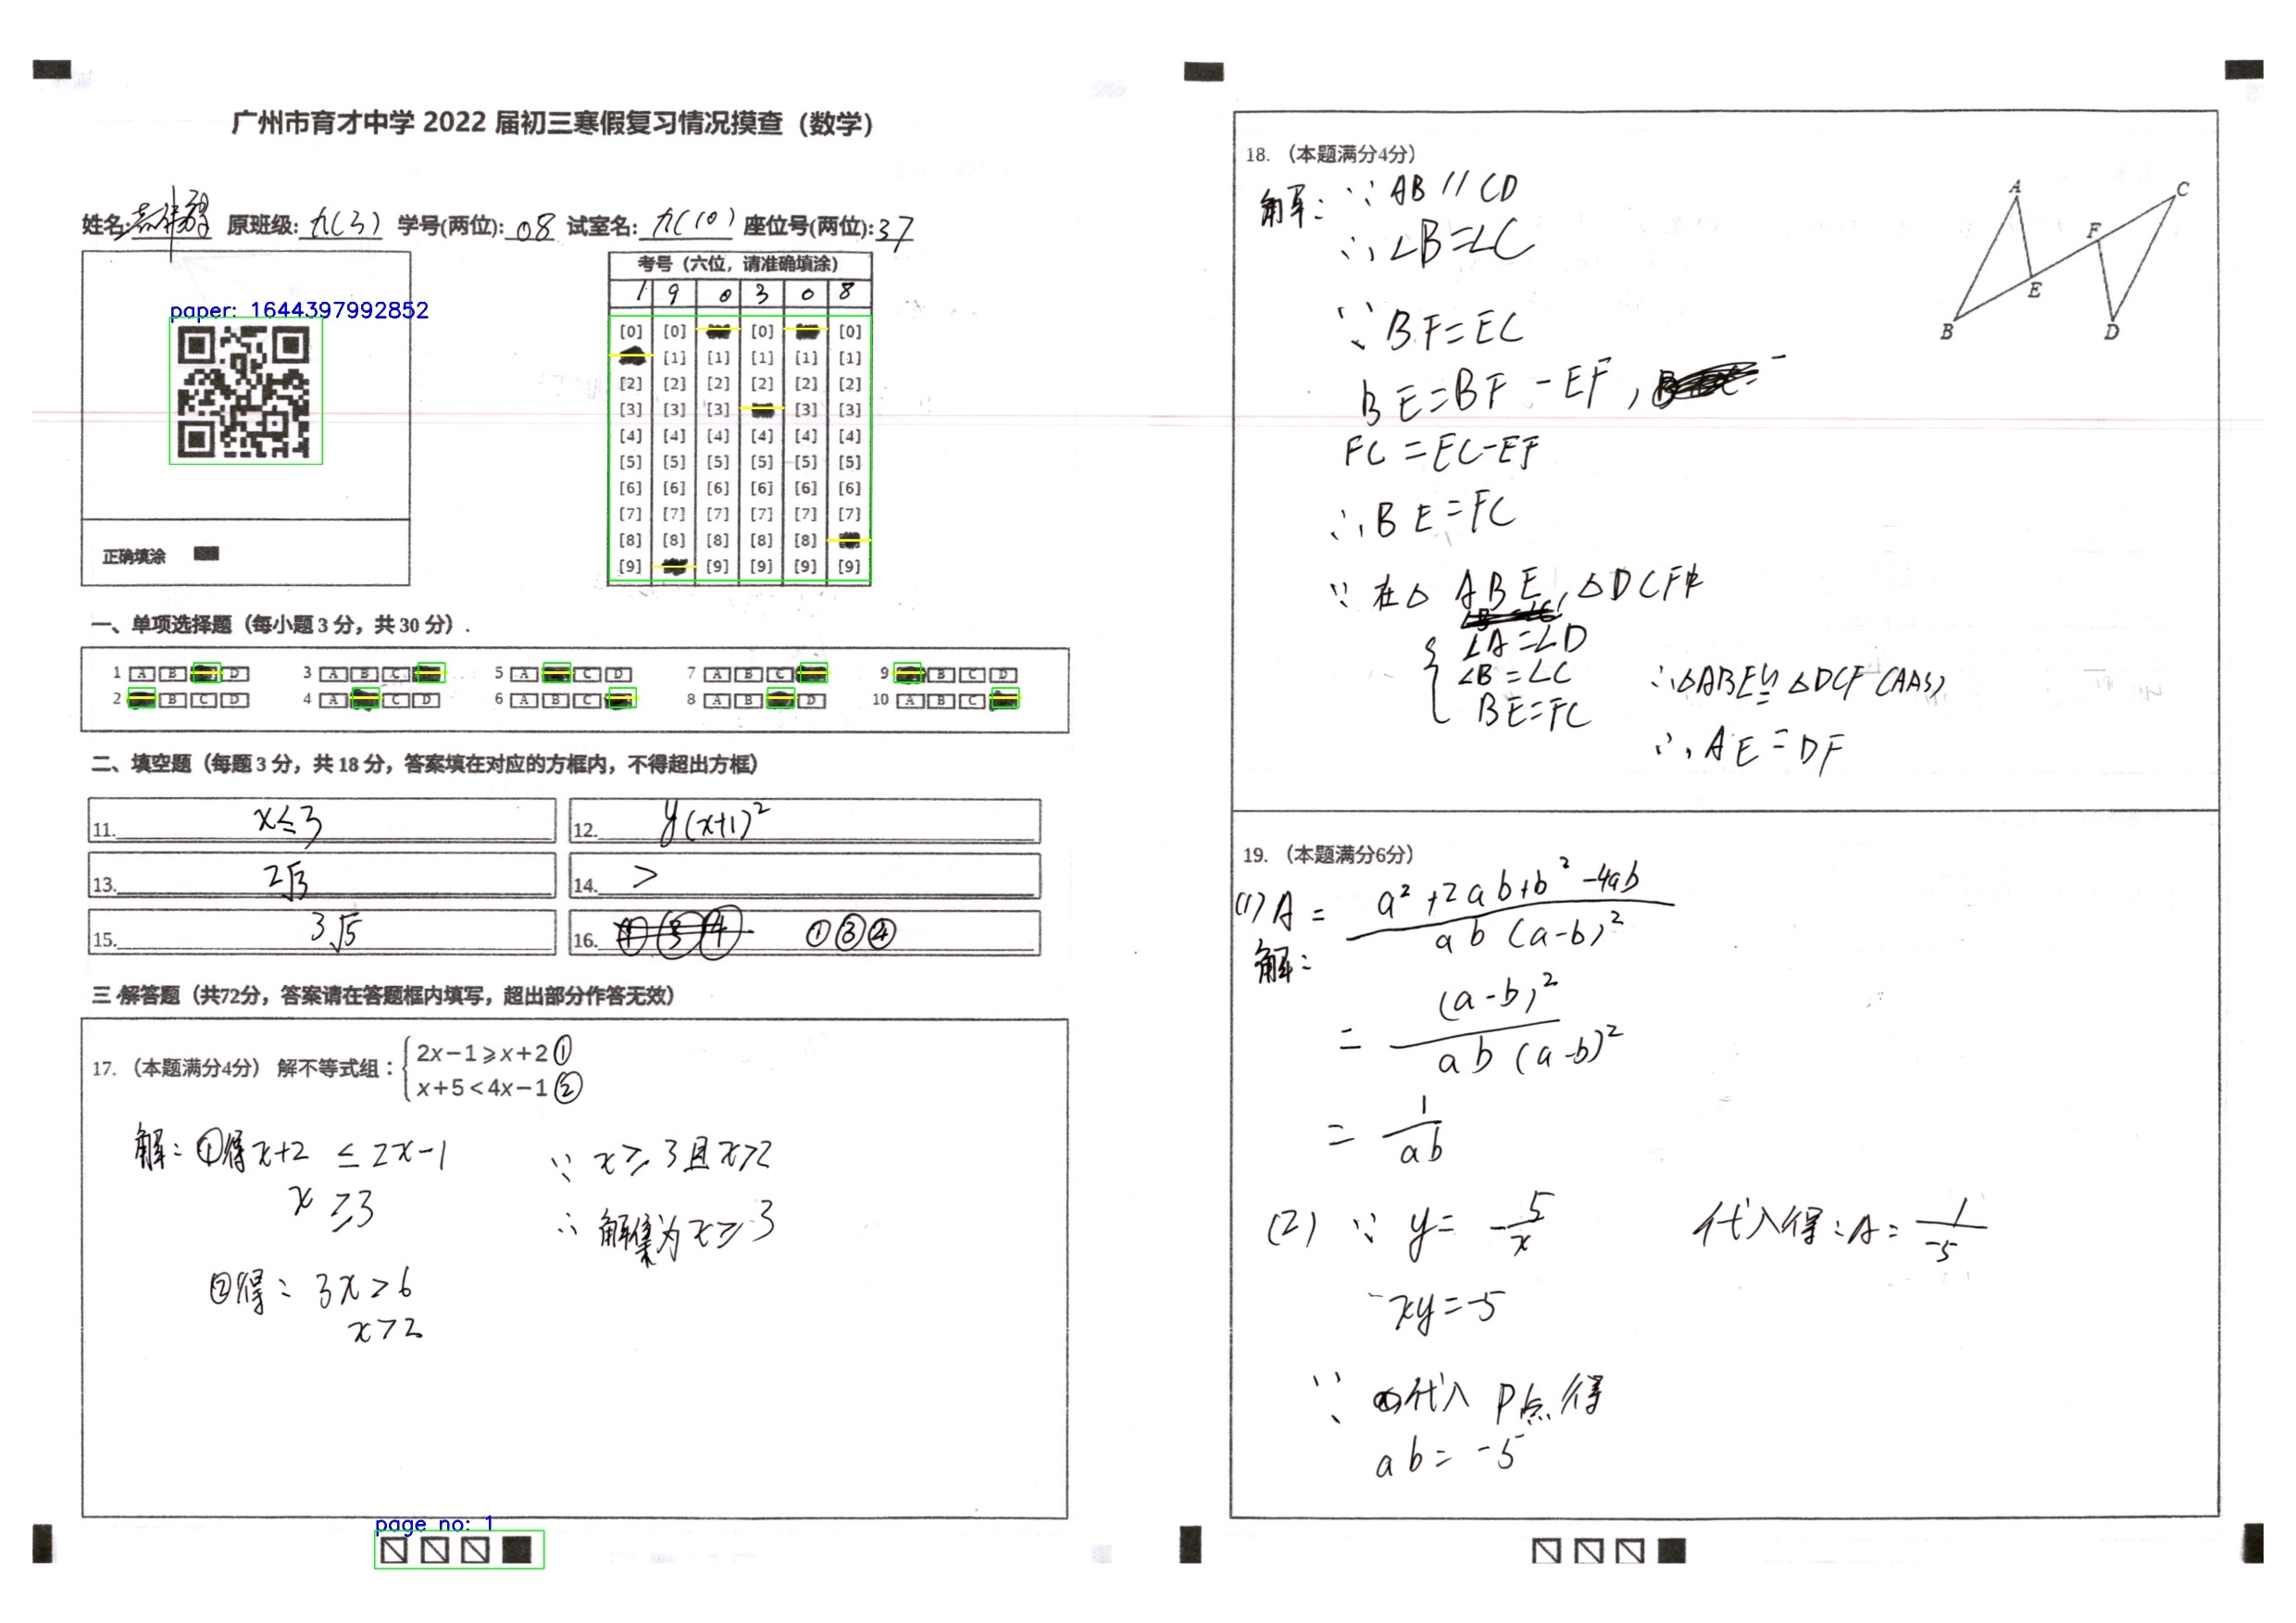 广州市育才中学 2022 届初三寒假复习情况摸查（数学）
姓名: 原班级: 九(3) 学号(两位): 08 试室名: 九(10) 座位号(两位): 37
paper: 1644397992852
正确填涂
考号（六位，请准确填涂）
1 9 0 3 0 8
[0] [0] [0] [0]
[1] [1] [1] [1] [1]
[2] [2] [2] [2] [2] [2]
[3] [3] [3] [3] [3]
[4] [4] [4] [4] [4] [4]
[5] [5] [5] [5] [5] [5]
[6] [6] [6] [6] [6] [6]
[7] [7] [7] [7] [7] [7]
[8] [8] [8] [8] [8]
[9] [9] [9] [9] [9]
一、单项选择题（每小题 3 分，共 30 分）.
1 A B D 3 A B C 5 A C D 7 A B C 9 B C D
2 B C D 4 A C D 6 A B C 8 A B D 10 A B C
二、填空题（每题 3 分，共 18 分，答案填在对应的方框内，不得超出方框）
11. x≤3 12. y(x+1)²
13. 2√3 14. >
15. 3√5 16. ①③④
三 解答题（共72分，答案请在答题框内填写，超出部分作答无效）
17. （本题满分4分） 解不等式组：
2x−1⩾x+2 ①
x+5<4x−1 ②
解: ①得x+2 ≤ 2x−1
x ≥3
②得: 3x>6
x>2
∵ x≥3且x>2
∴ 解集为x≥3
page no: 1
18. （本题满分4分）
A
C
F
E
B
D
解: ∵ AB // CD
∴ ∠B=∠C
∵ BF=EC
BE=BF−EF,
FC=EC−EF
∴ BE=FC
∵ 在△ABE, △DCF中
∠A=∠D
∠B=∠C
BE=FC
∴△ABE≌△DCF (AAS)
∴ AE=DF
19. （本题满分6分）
(1) A = (a²+2ab+b²−4ab)/(ab(a−b)²)
解:
= (a−b)²/(ab(a−b)²)
= 1/(ab)
(2) ∵ y= −5/x
xy=−5
∵ 代入 P点得
ab= −5
代入得: A= 1/−5